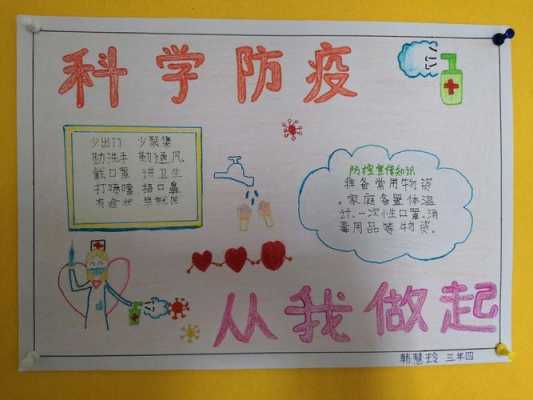 科学防疫
少出门 少聚集
勤洗手 勤通风
戴口罩 讲卫生
打喷嚏 捂口鼻
有症状 早就医
防控宣传知识
准备常用物资
。家庭备置体温
计、一次性口罩、消
毒用品等物资。
从我做起
韩慧玲 三年四